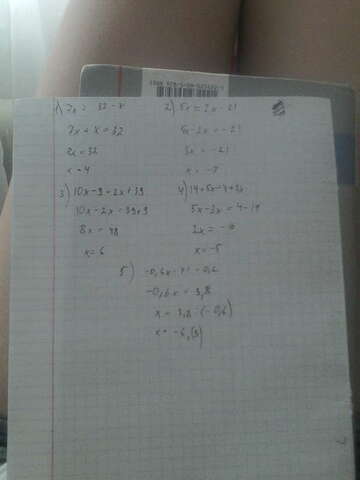 1) 7x = 32 - x
7x + x = 32
8x = 32
x = 4
2) 5x = 2x - 21
5x - 2x = -21
3x = -21
x = -7
3) 10x - 9 = 2x + 39
10x - 2x = 39+9
8x = 48
x = 6
4) 14 + 5x = 4 + 3x
5x - 3x = 4 - 14
2x = -10
x = -5
5)
-0,6x
-0,6x = 3,8
x = 3,8 : (-0,6)
x = -6,(3)